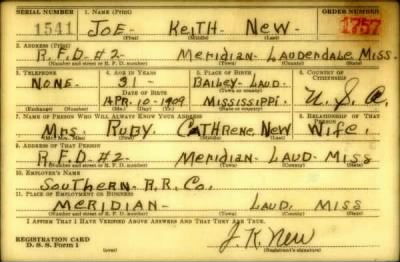 SERIAL NUMBER 1. NAME (Print) ORDER NUMBER
1541 JOE - KEITH - NEW - 1757
(First) (Middle) (Last)
2. ADDRESS (Print)
R.F.D. #2 - MERIDIAN - LAUDERDALE MISS.
(Number and street or R. F. D. number) (Town) (County) (State)
3. TELEPHONE 4. AGE IN YEARS 5. PLACE OF BIRTH 6. COUNTRY OF CITIZENSHIP
NONE - 31 - BAILEY - LAUD -
DATE OF BIRTH (Town) (County)
APR. 10 - 1909 MISSISSIPPI. U. S. A.
(Exchange) (Number) (Mo.) (Day) (Yr.) (State or country)
7. NAME OF PERSON WHO WILL ALWAYS KNOW YOUR ADDRESS 8. RELATIONSHIP OF THAT PERSON
Mrs. RUBY CATHRENE NEW WIFE.
(Mr., Mrs., Miss) (First) (Middle) (Last)
9. ADDRESS OF THAT PERSON
R.F.D. #2 MERIDIAN - LAUD - MISS
(Number and street or R. F. D. number) (Town) (County) (State)
10. EMPLOYER'S NAME
SOUTHERN - R.R. CO.
11. PLACE OF EMPLOYMENT OR BUSINESS
MERIDIAN - LAUD. MISS
(Number and street or R. F. D. number) (Town) (County) (State)
I AFFIRM THAT I HAVE VERIFIED ABOVE ANSWERS AND THAT THEY ARE TRUE.
REGISTRATION CARD
D. S. S. Form 1 J. K. New
(Registrant's signature)